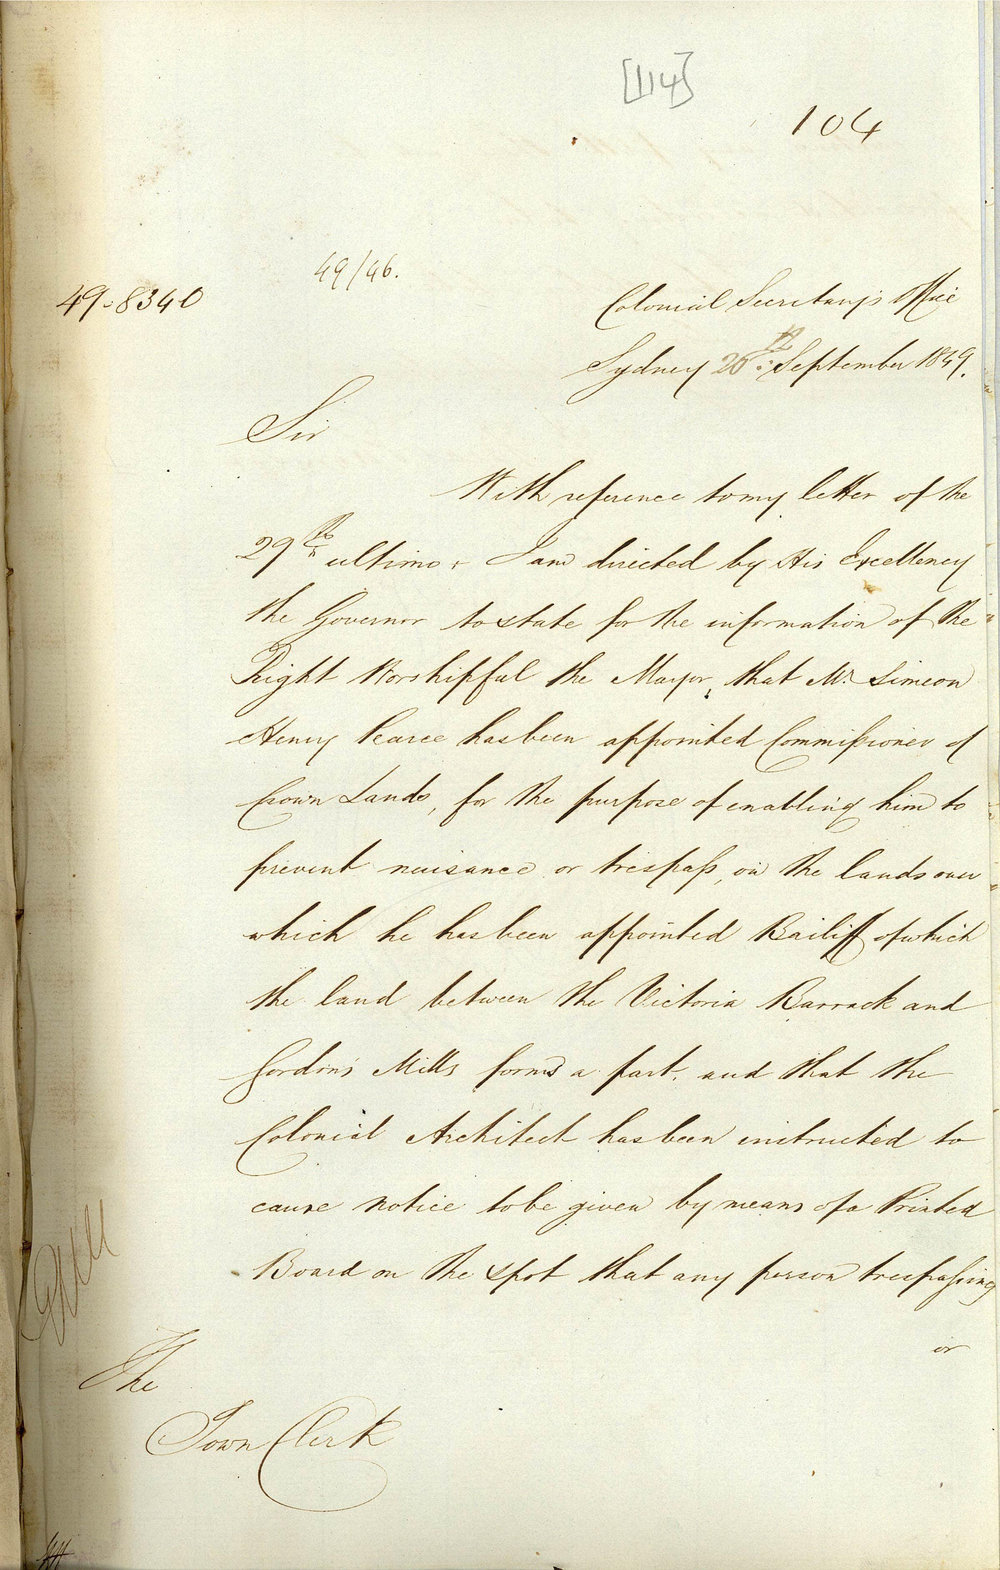 [114]
104
49/46.
49-8340
Colonial Secretary's Office
Sydney 20th September 1849.
Sir
With reference to my letter of the
29th ultimo, I am directed by His Excellency
the Governor to state for the information of the
Right Worshipful the Mayor, that Mr. Simeon
Henry Pearce has been appointed Commissioner of
Crown Lands, for the purpose of enabling him to
prevent nuisance or trespass, on the lands over
which he has been appointed Bailiff of which
the land between the Victoria Barrack and
Gordon's Mills forms a part, and that the
Colonial Architect has been instructed to
cause notice to be given by means of a Printed
Board on the spot that any person trespassing
or
The
Town Clerk